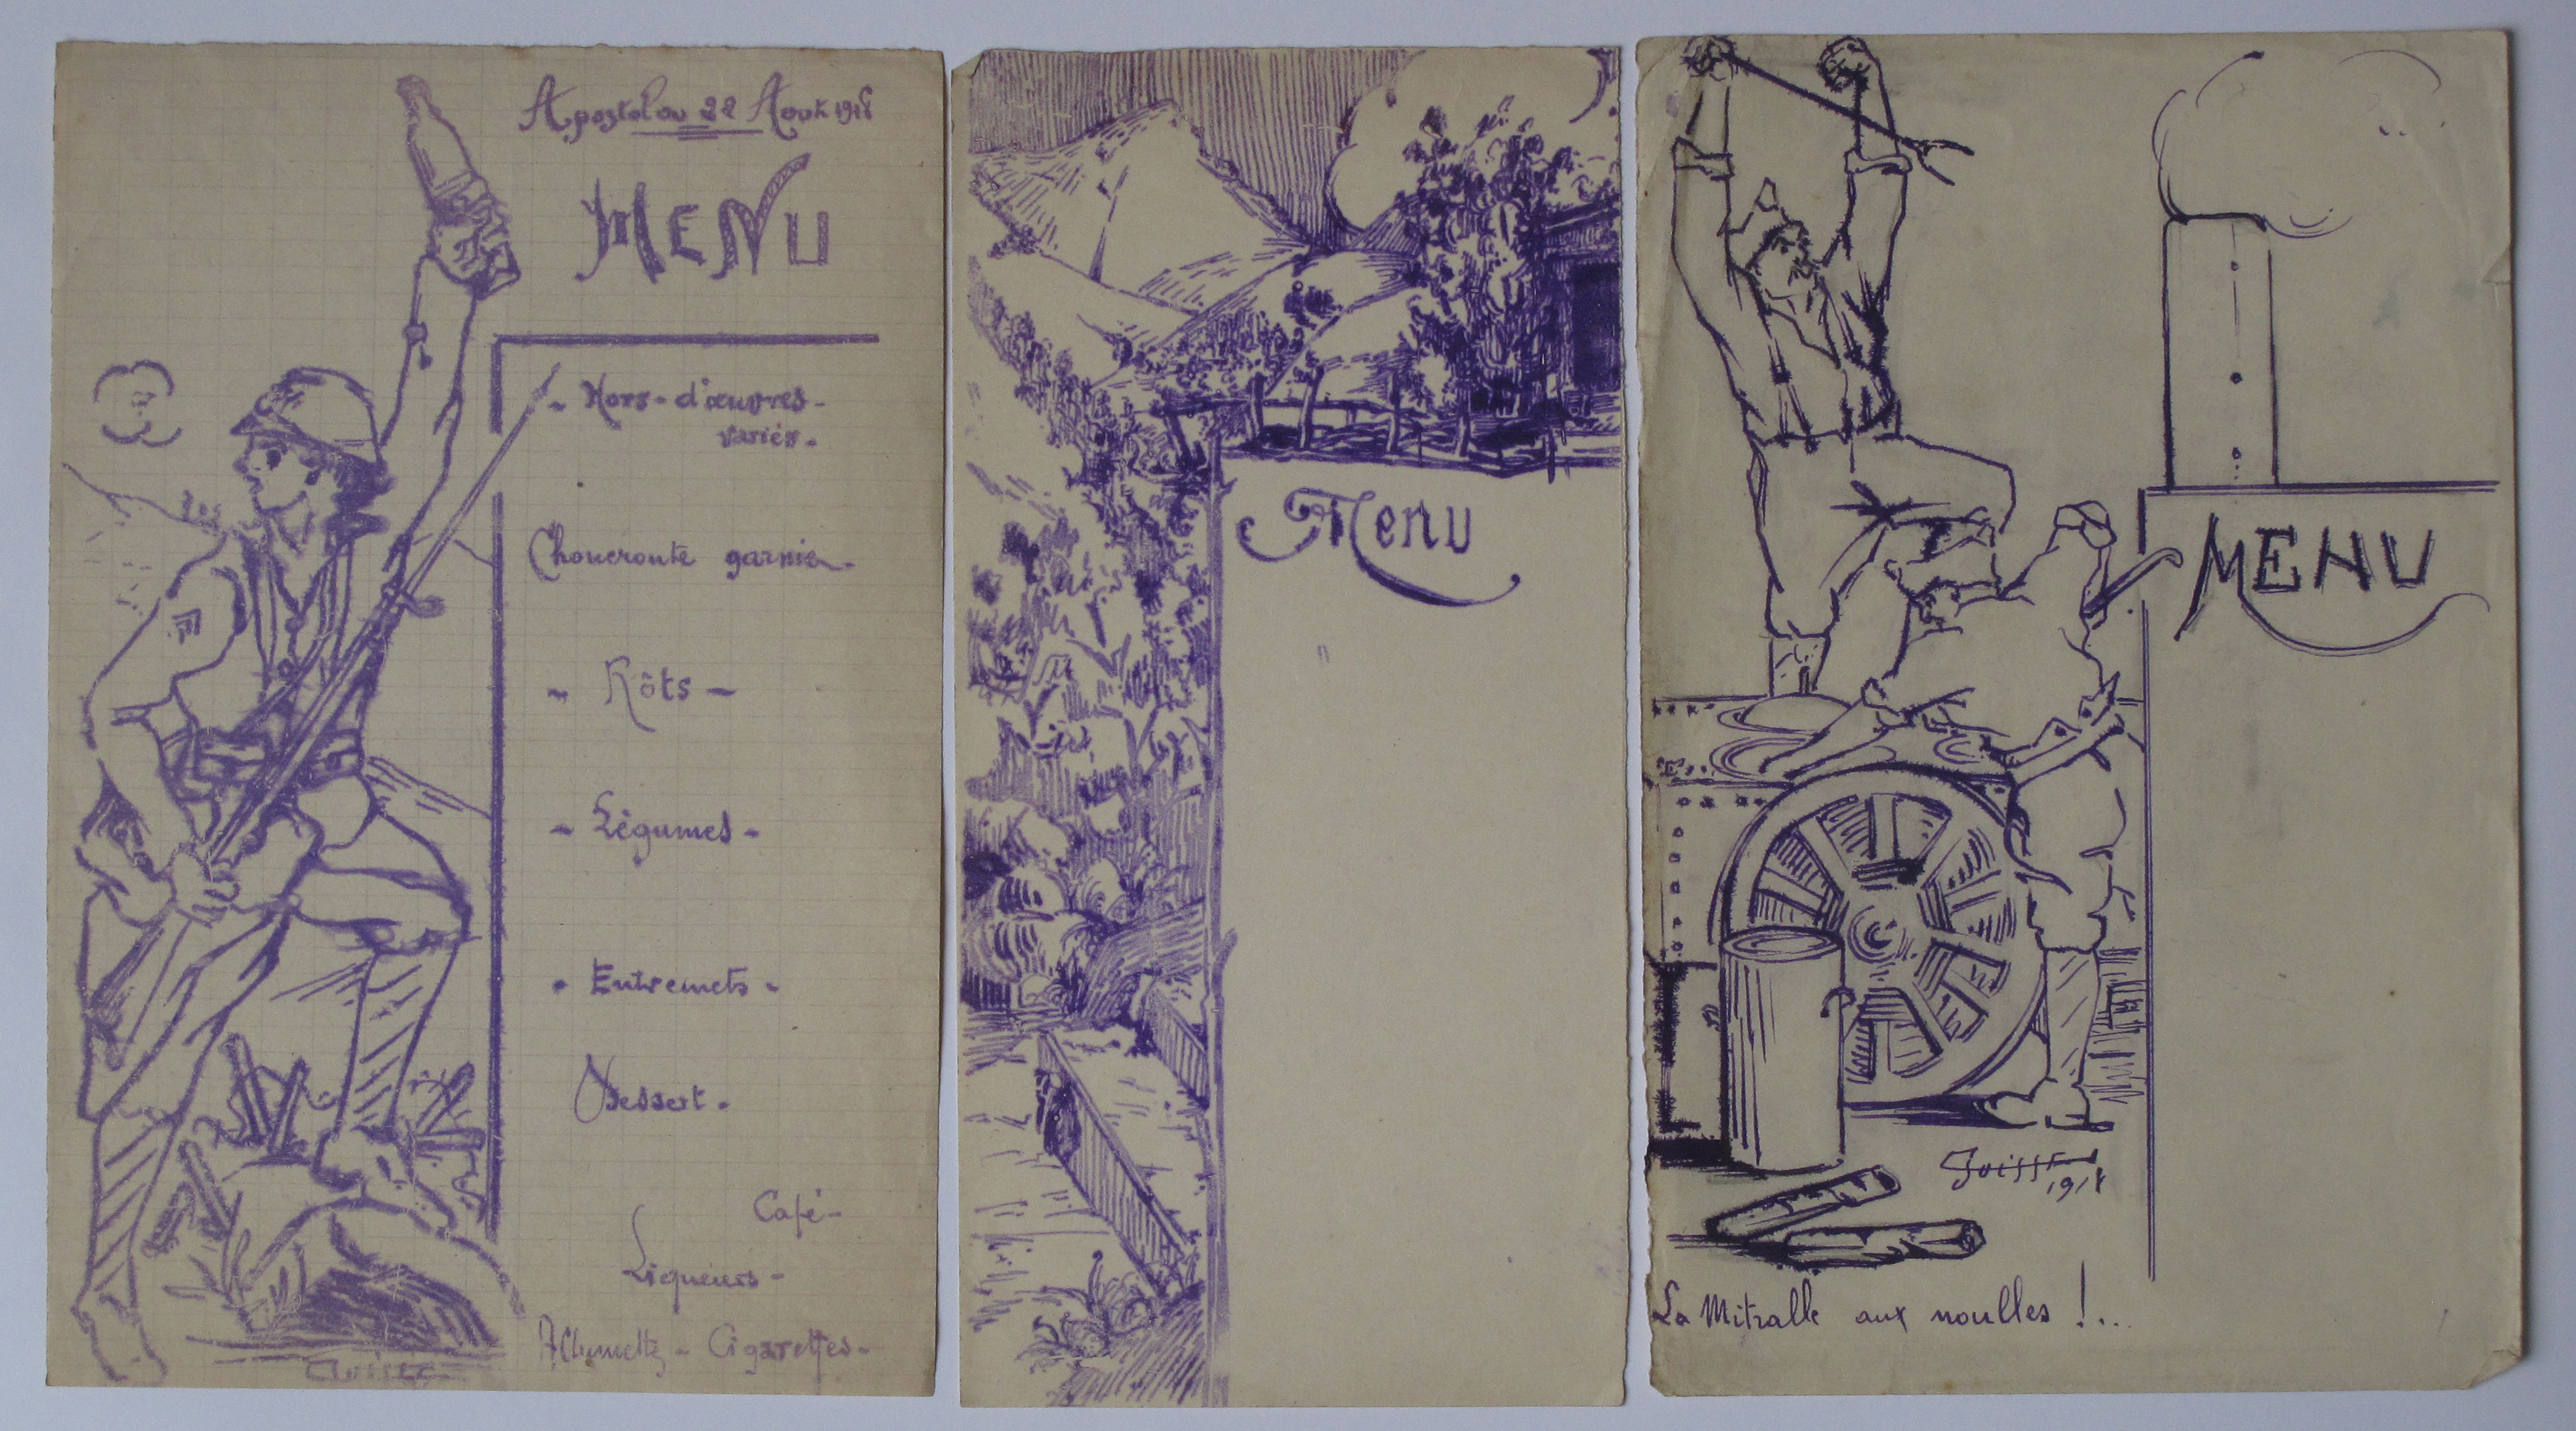 Apostolou 22 Août 1918
MENU
- Hors-d'œuvres-
variés-
Choucroute garnie-
- Rôts -
- Légumes -
- Entremets -
Dessert-
Café-
Liqueurs-
Cigarettes-
Menu
MENU
1918
La Mitralle aux noulles !...